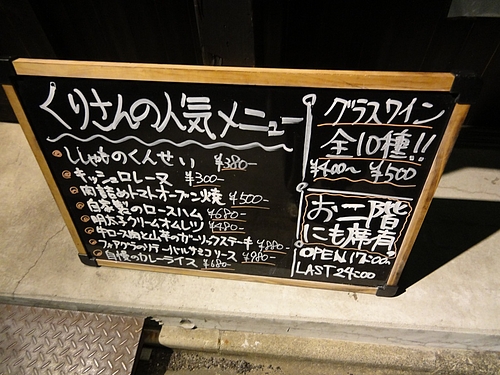 くりさんの人気メニュー
ししゃものくんせい ¥380-
キッシュロレーヌ ¥300-
肉詰めトマトオーブン焼 ¥500-
自家製のロースハム ¥680-
明太子クリームオムレツ ¥480-
牛ロース肉と山芋のガーリックステーキ ¥880-
フォアグラのソテー バルサミコソース ¥980-
自慢のカレーライス ¥680-
グラスワイン
全10種!!
¥400~ ¥500
お二階
にも席有
OPEN 17:00
LAST 24:00